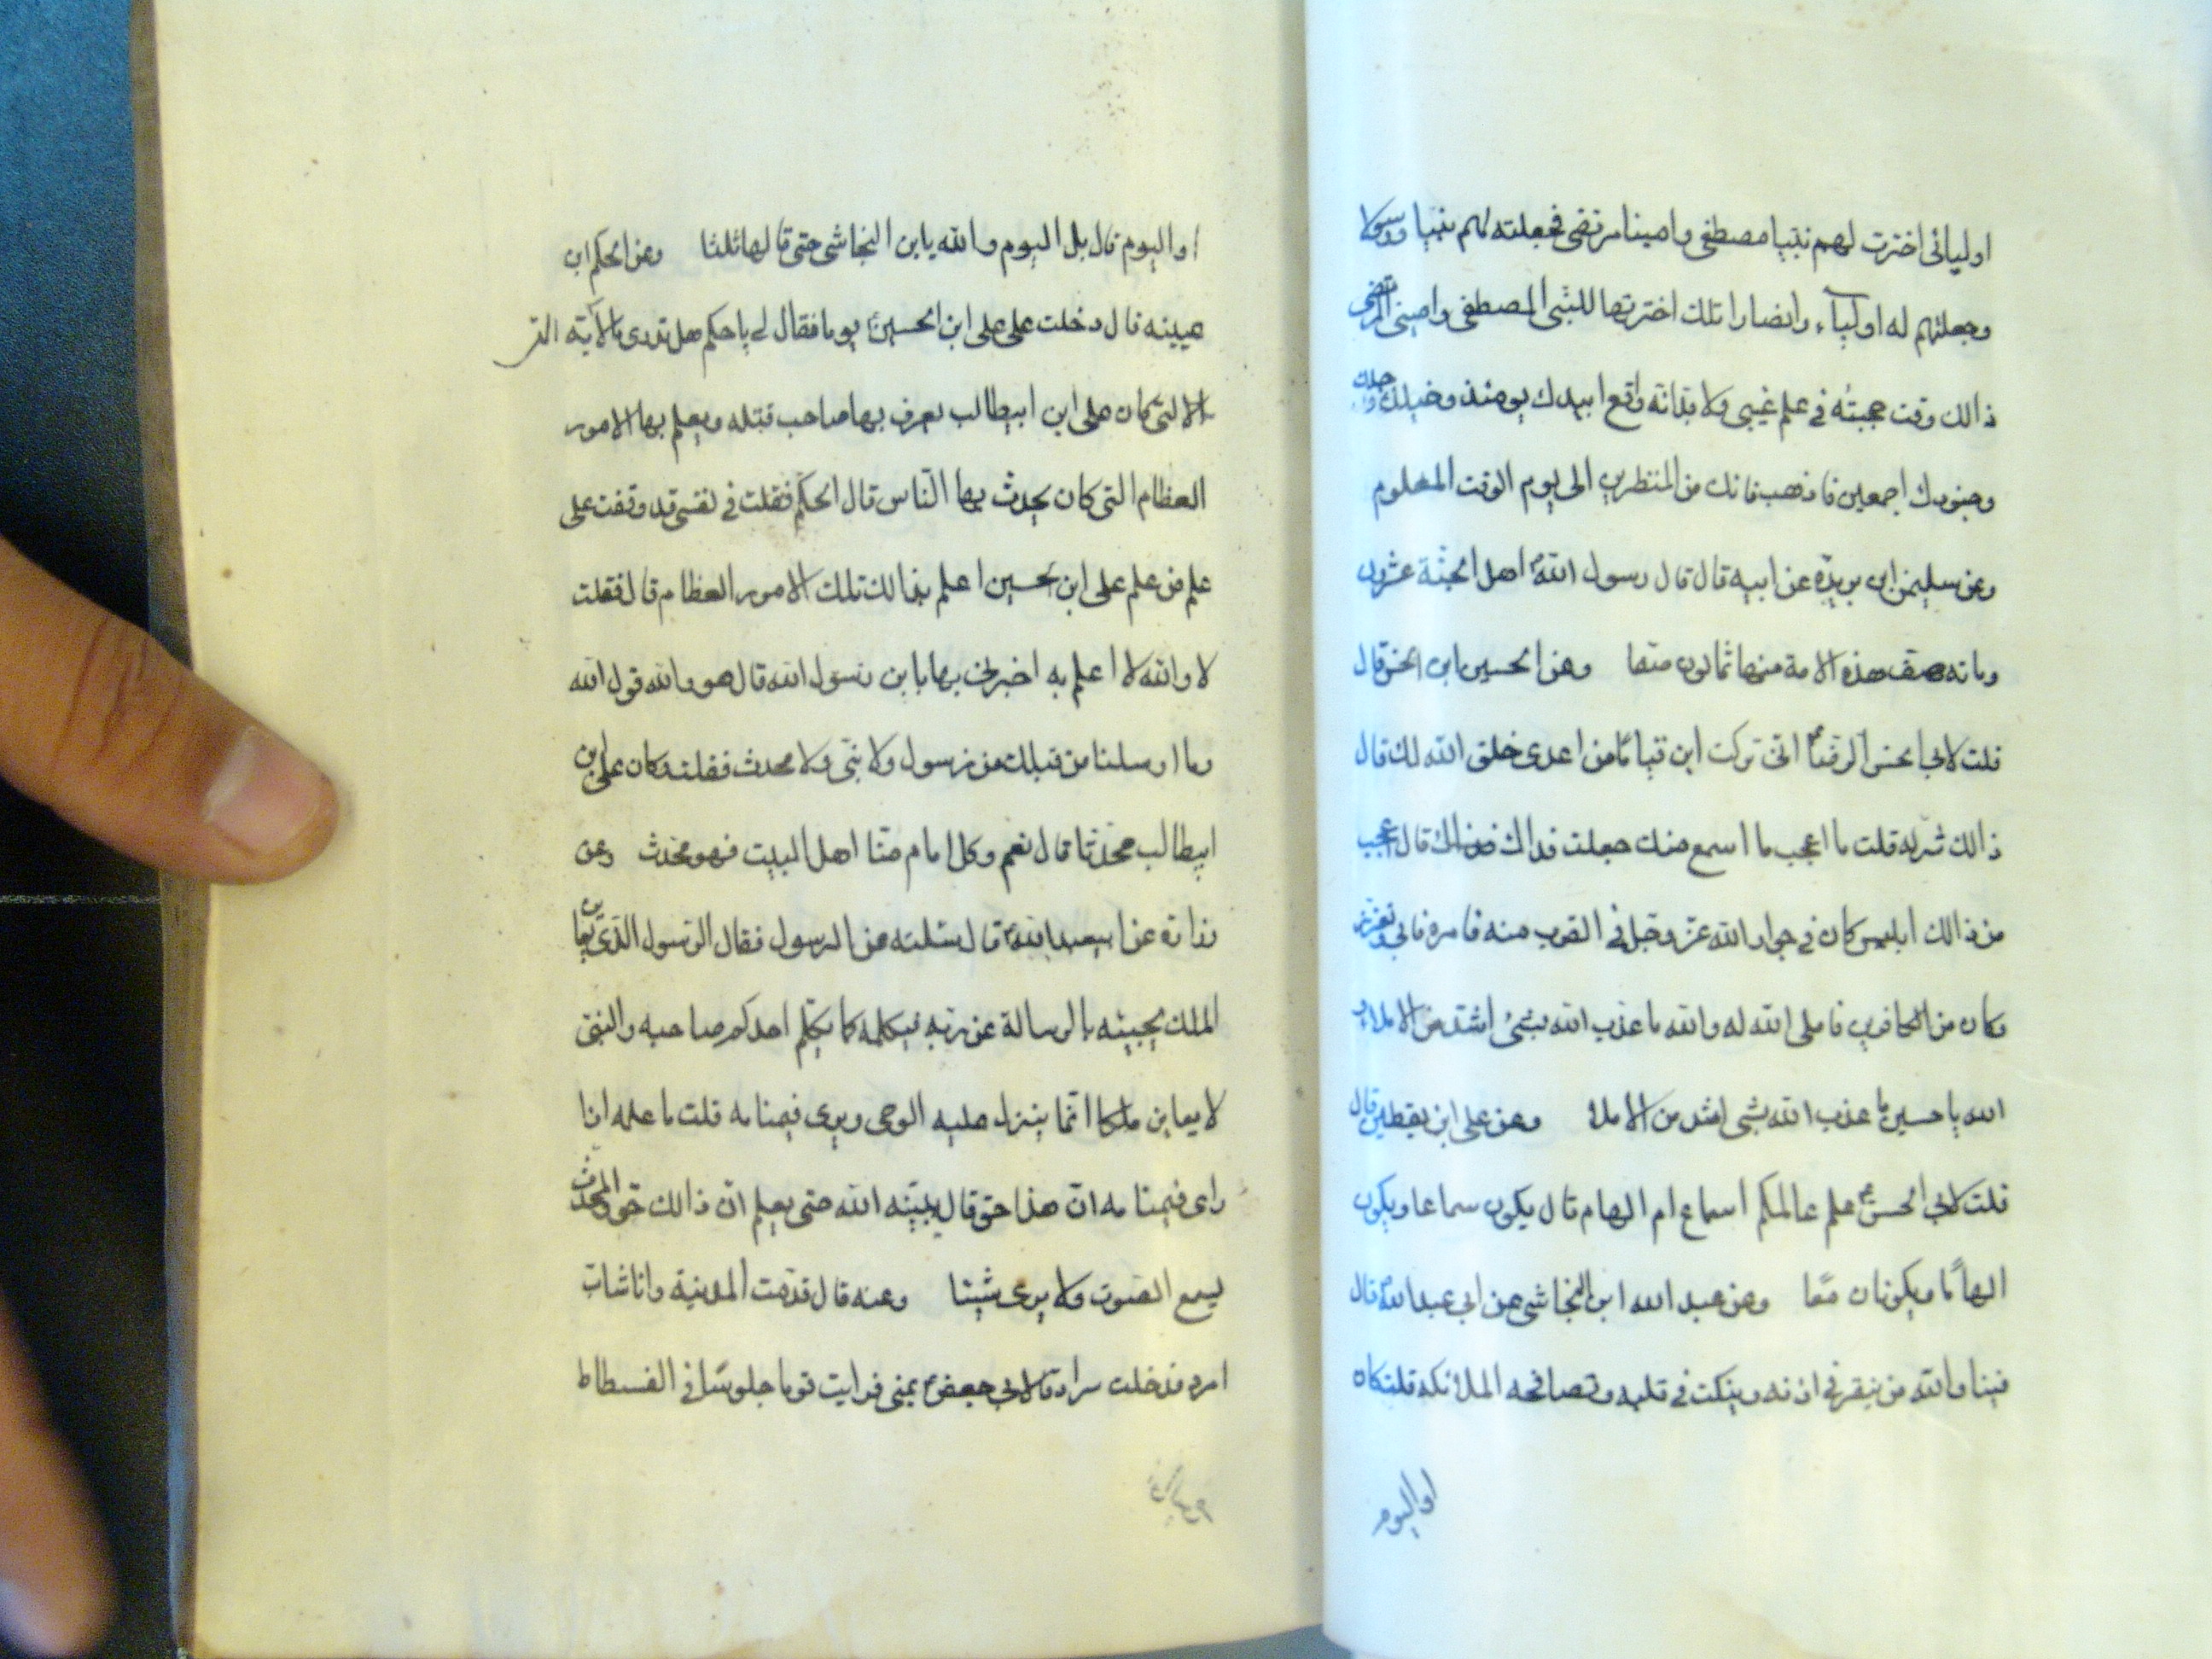 اوليائى اخترت لهم نبيا مصطفى وامينا مرتضى فجعلته لهم نبيا ورسولا
وجعلتهم له اولياء وانصارا تلك اخترتها للنبى المصطفى وامينى المرتضى
ذالك وقت حجبته فى علم غيبى ولا بد انه واقع ابيدك يومئذ وخيلك ورجلك
وجنودك اجمعين فاذهب فانك من المنظرين الى يوم الوقت المعلوم
وعن سليمن ابن بريدة عن ابيه قال قال رسول الله اهل الجنة عشرون
ومائه صف هذه الامة منها ثمانون صفا وعن الحسين ابن الحسن قال
قلت لابى الحسن الرضا انى تركت ابن قياما من اعدى خلق الله لك قال
ذالك شر له قلت ما اعجب ما اسمع منك جعلت فداك قال اعجب
من ذالك ابليس كان فى جوار الله عز وجل فى القرب منه فامره فابى وتعزز
وكان من الكافرين فاملى الله له والله ما عذب الله بشئ اشد من الاملاء
الله يا حسين ما عذب الله بشى اشد من الاملاء وعن على ابن يقطين قال
قلت لابى الحسن علم عالمكم اسماع ام الهام قال يكون سماعا ويكون
الهاما ويكونان معا وعن عبد الله ابن النجاشى عن ابى عبد الله قال
فينا والله من ينقر فى اذنه وينكت فى قلبه وتصافحه الملائكه قلت كان
او اليوم
او اليوم قال بل اليوم والله يا بن النجاشى حتى قالها ثلثا وعن الحكم ابن
عيينه قال دخلت على على ابن الحسين يوما فقال لى يا حكم هل تدرى ما الآية التى
التى كان على ابن ابيطالب يعرف بها صاحب قتله ويعلم بها الامور
العظام التى كان يحدث بها الناس قال الحكم فقلت فى نفسى قد وقفت على
علم من علم على ابن الحسين اعلم بذالك تلك الامور العظام قال فقلت
لا والله لا اعلم به اخبرنى بها يا بن رسول الله قال هو والله قول الله
وما ارسلنا من قبلك من رسول ولا نبى ولا محدث فقلت وكان على ابن
ابيطالب محدثا قال نعم وكل امام منا اهل البيت فهو محدث وعن
زرارة عن ابيعبد الله قال سئلته عن الرسول فقال الرسول الذى يعاين
الملك يجيئه بالرسالة عن ربه فيكلمه كما يكلم احدكم صاحبه والنبى
لا يعاين ملكا انما ينزل عليه الوحى ويرى فيمنامه قلت ما علمه اذا
راى فيمنامه ان هذا حق قال يبينه الله حتى يعلم ان ذالك حق والمحدث
يسمع الصوت ولا يرى شيئا وعنه قال قدمت المدينة وانا شاب
امرد فدخلت سرادقا لابى جعفر بمنى فرايت قوما جلوسا فى الفسطاط